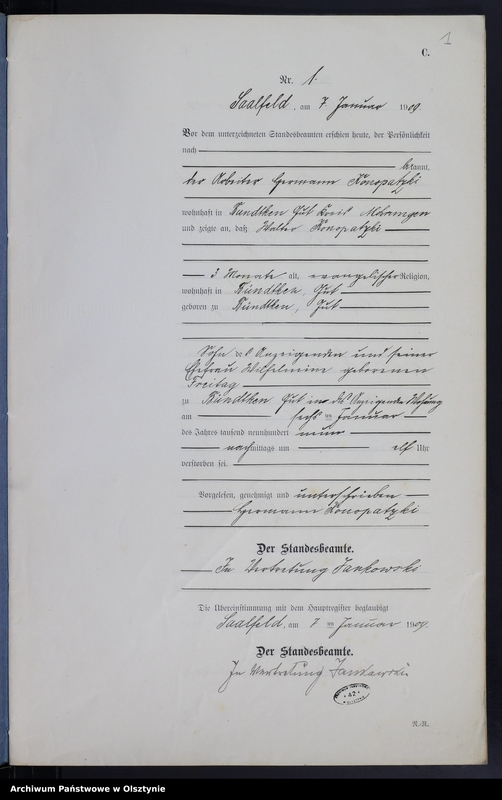 1
C.
Nr. 1.
Saalfeld, am 7. Januar 1909
Vor dem unterzeichneten Standesbeamten erschien heute, der Persönlichkeit
nach
bekannt,
der Arbeiter Hermann Konopatzki
wohnhaft in Kundtken Gut Kreis Mohrungen
und zeigte an, daß Walter Konopatzki
3 Monate alt, evangelischer Religion,
wohnhaft in Kündtken, Gut
geboren zu Kündtken, Gut
Sohn des Anzeigenden und seiner
Ehefrau Wilhelmine geborenen
Freitag
zu Kündtken Gut in des Anzeigenden Wohnung
am sechsten Januar
des Jahres tausend neunhundert neun
nachmittags um elf Uhr
verstorben sei.
Vorgelesen, genehmigt und unterschrieben
Hermann Konopatzki
Der Standesbeamte.
In Vertretung Jankowski
Die Übereinstimmung mit dem Hauptregister beglaubigt
Saalfeld, am 7ten Januar 1909.
Der Standesbeamte.
In Vertretung Jankowski
42
R.-R.
Archiwum Państwowe w Olsztynie